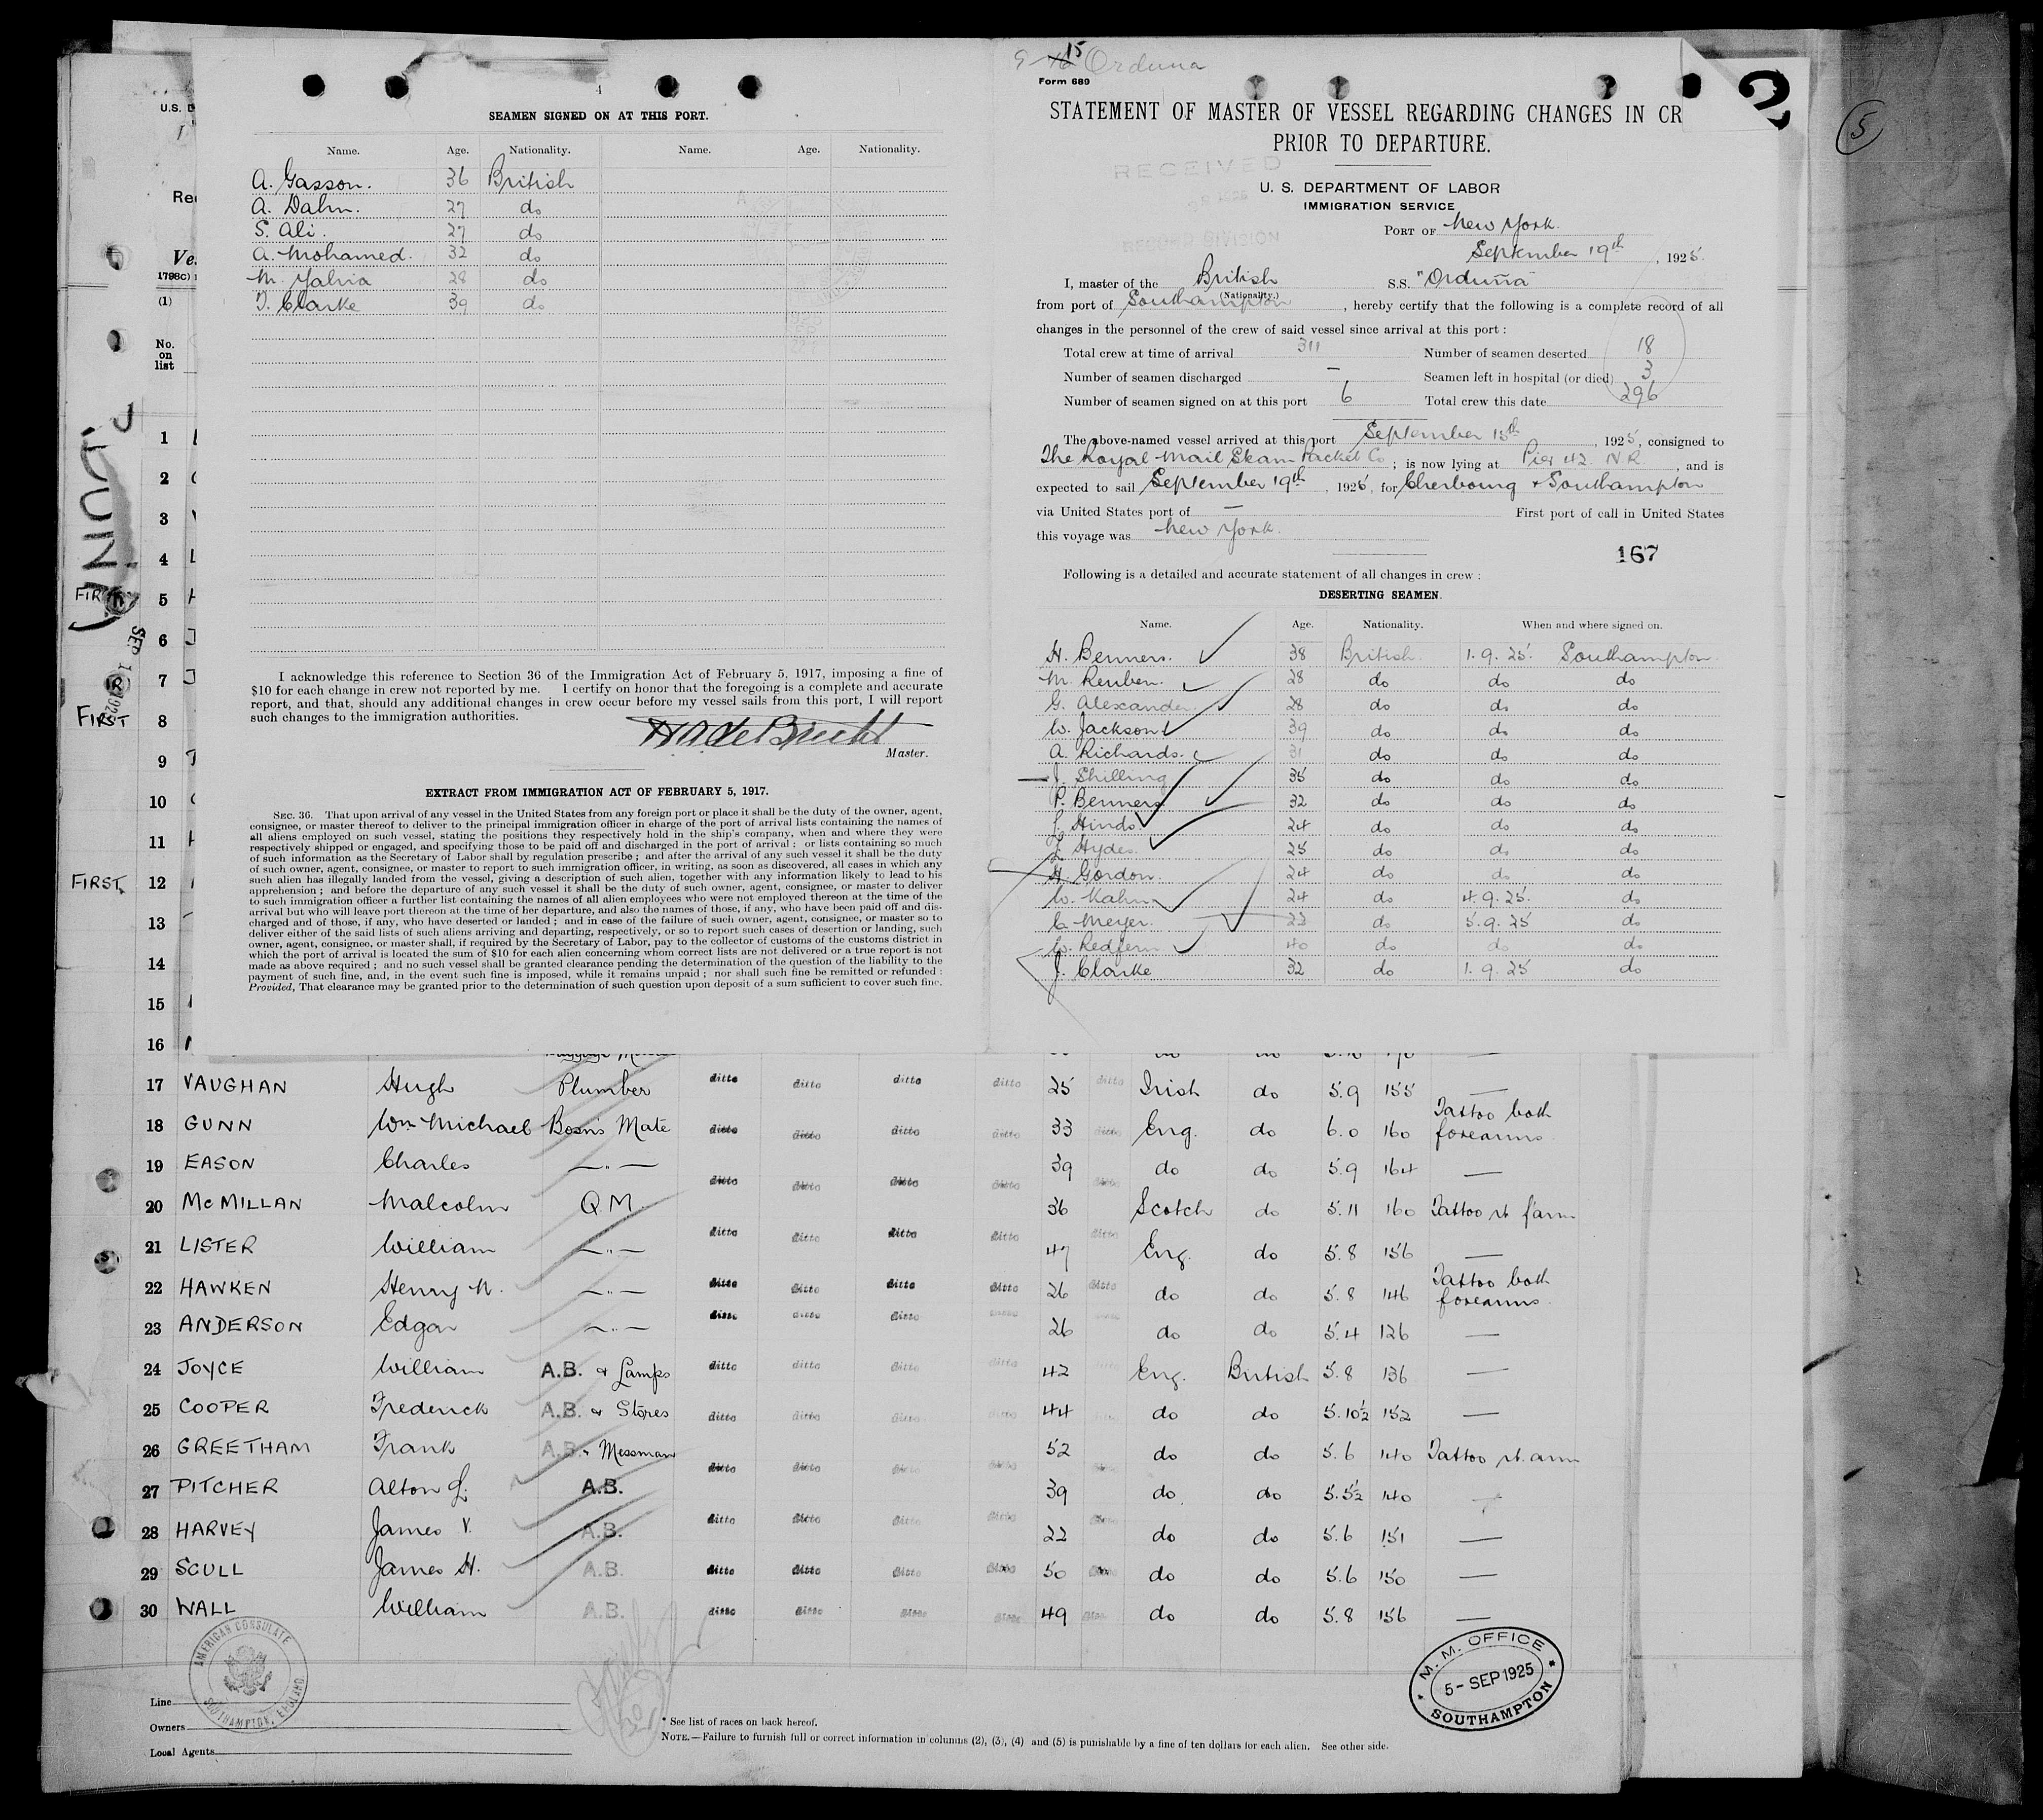 9-15 Orduna
Form 689
SEAMEN SIGNED ON AT THIS PORT.
Name. Age. Nationality. Name. Age. Nationality.
A. Gasson. 36 British
A. Dahn. 27 do
S. Ali. 27 do
A. Mohamed. 32 do
M. Yahia 28 do
T. Clarke 39 do
I acknowledge this reference to Section 36 of the Immigration Act of February 5, 1917, imposing a fine of
$10 for each change in crew not reported by me. I certify on honor that the foregoing is a complete and accurate
report, and that, should any additional changes in crew occur before my vessel sails from this port, I will report
such changes to the immigration authorities.
Master.
EXTRACT FROM IMMIGRATION ACT OF FEBRUARY 5, 1917.
SEC. 36. That upon arrival of any vessel in the United States from any foreign port or place it shall be the duty of the owner, agent,
consignee, or master thereof to deliver to the principal immigration officer in charge of the port of arrival lists containing the names of
all aliens employed on such vessel, stating the positions they respectively hold in the ship's company, when and where they were
respectively shipped or engaged, and specifying those to be paid off and discharged in the port of arrival; or lists containing so much
of such information as the Secretary of Labor shall by regulation prescribe; and after the arrival of any such vessel it shall be the duty
of such owner, agent, consignee, or master to report to such immigration officer, in writing, as soon as discovered, all cases in which any
such alien has illegally landed from the vessel, giving a description of such alien, together with any information likely to lead to his
apprehension; and before the departure of any such vessel it shall be the duty of such owner, agent, consignee, or master to deliver
to such immigration officer a further list containing the names of all alien employees who were not employed thereon at the time of the
arrival but who will leave port thereon at the time of her departure, and also the names of those, if any, who have been paid off and dis-
charged and of those, if any, who have deserted or landed; and in case of the failure of such owner, agent, consignee, or master so to
deliver either of the said lists of such aliens arriving and departing, respectively, or so to report such cases of desertion or landing, such
owner, agent, consignee, or master shall, if required by the Secretary of Labor, pay to the collector of customs of the customs district in
which the port of arrival is located the sum of $10 for each alien concerning whom correct lists are not delivered or a true report is not
made as above required; and no such vessel shall be granted clearance pending the determination of the question of the liability to the
payment of such fine, and, in the event such fine is imposed, while it remains unpaid; nor shall such fine be remitted or refunded:
Provided, That clearance may be granted prior to the determination of such question upon deposit of a sum sufficient to cover such fine.
STATEMENT OF MASTER OF VESSEL REGARDING CHANGES IN CR
PRIOR TO DEPARTURE.
RECEIVED
RECORD DIVISION
U. S. DEPARTMENT OF LABOR
IMMIGRATION SERVICE
PORT OF New York.
September 19th, 1925.
I, master of the British S.S. "Orduña"
(Nationality.)
from port of Southampton, hereby certify that the following is a complete record of all
changes in the personnel of the crew of said vessel since arrival at this port:
Total crew at time of arrival 311 Number of seamen deserted 18
Number of seamen discharged — Seamen left in hospital (or died) 3
Number of seamen signed on at this port 6 Total crew this date 296
The above-named vessel arrived at this port September 15th, 1925, consigned to
The Royal Mail Steam Packet Co; is now lying at Pier 42. N.R., and is
expected to sail September 19th, 1925, for Cherbourg & Southampton
via United States port of — First port of call in United States
this voyage was New York.
167
Following is a detailed and accurate statement of all changes in crew:
DESERTING SEAMEN.
Name. Age. Nationality. When and where signed on.
H. Benners. 38 British. 1.9.25. Southampton.
M. Reuben. 28 do do do
G. Alexander. 28 do do do
W. Jackson 39 do do do
A. Richards. 31 do do do
J. Shilling 35 do do do
P. Benners 32 do do do
J. Hinds 24 do do do
J. Hydes. 25 do do do
H. Gordon. 24 do do do
W. Kahn 24 do 4.9.25. do
C. Meyer. 23 do 5.9.25 do
W. Redfern 40 do do do
J. Clarke 32 do 1.9.25 do
5
U.S. D
Rec
Ve
1798c)
(1)
No.
on
list
1
2
3
4
FIRST 5
6
7
FIRST 8
9
10
11
FIRST 12
13
14
15
16
17 VAUGHAN Hugh Plumber ditto ditto ditto ditto 25 ditto Irish do 5.9 155 —
18 GUNN Wm Michael Bosn's Mate ditto ditto ditto ditto 33 ditto Eng. do 6.0 160 Tattoo both forearms.
19 EASON Charles —"— ditto ditto ditto ditto 39 ditto do do 5.9 164 —
20 McMILLAN Malcolm Q.M. 36 Scotch do 5.11 160 Tattoo rt f'arm
21 LISTER William —"— ditto ditto ditto ditto 47 ditto Eng. do 5.8 156 —
22 HAWKEN Henry N. —"— ditto ditto ditto ditto 26 ditto do do 5.8 146 Tattoo both forearms.
23 ANDERSON Edgar —"— ditto ditto ditto 26 do do 5.4 126 —
24 JOYCE William A.B. & Lamps ditto ditto ditto ditto 42 Eng. British 5.8 136 —
25 COOPER Frederick A.B. & Stores ditto ditto ditto ditto 44 do do 5.10½ 152 —
26 GREETHAM Frank A.B. & Messman ditto ditto ditto ditto 52 ditto do do 5.6 140 Tattoo rt. arm
27 PITCHER Alton J. A.B. 39 do do 5.5½ 140 —
28 HARVEY James V. A.B. ditto ditto ditto ditto 22 ditto do do 5.6 151 —
29 SCULL James H. A.B. ditto ditto ditto ditto 50 ditto do do 5.6 150 —
30 WALL William A.B. ditto ditto ditto ditto 49 ditto do do 5.8 156 —
AMERICAN CONSULATE
SOUTHAMPTON, ENGLAND
M. M. OFFICE
5- SEP 1925
SOUTHAMPTON
Line
Owners
Local Agents
* See list of races on back hereof.
NOTE.—Failure to furnish full or correct information in columns (2), (3), (4) and (5) is punishable by a fine of ten dollars for each alien. See other side.